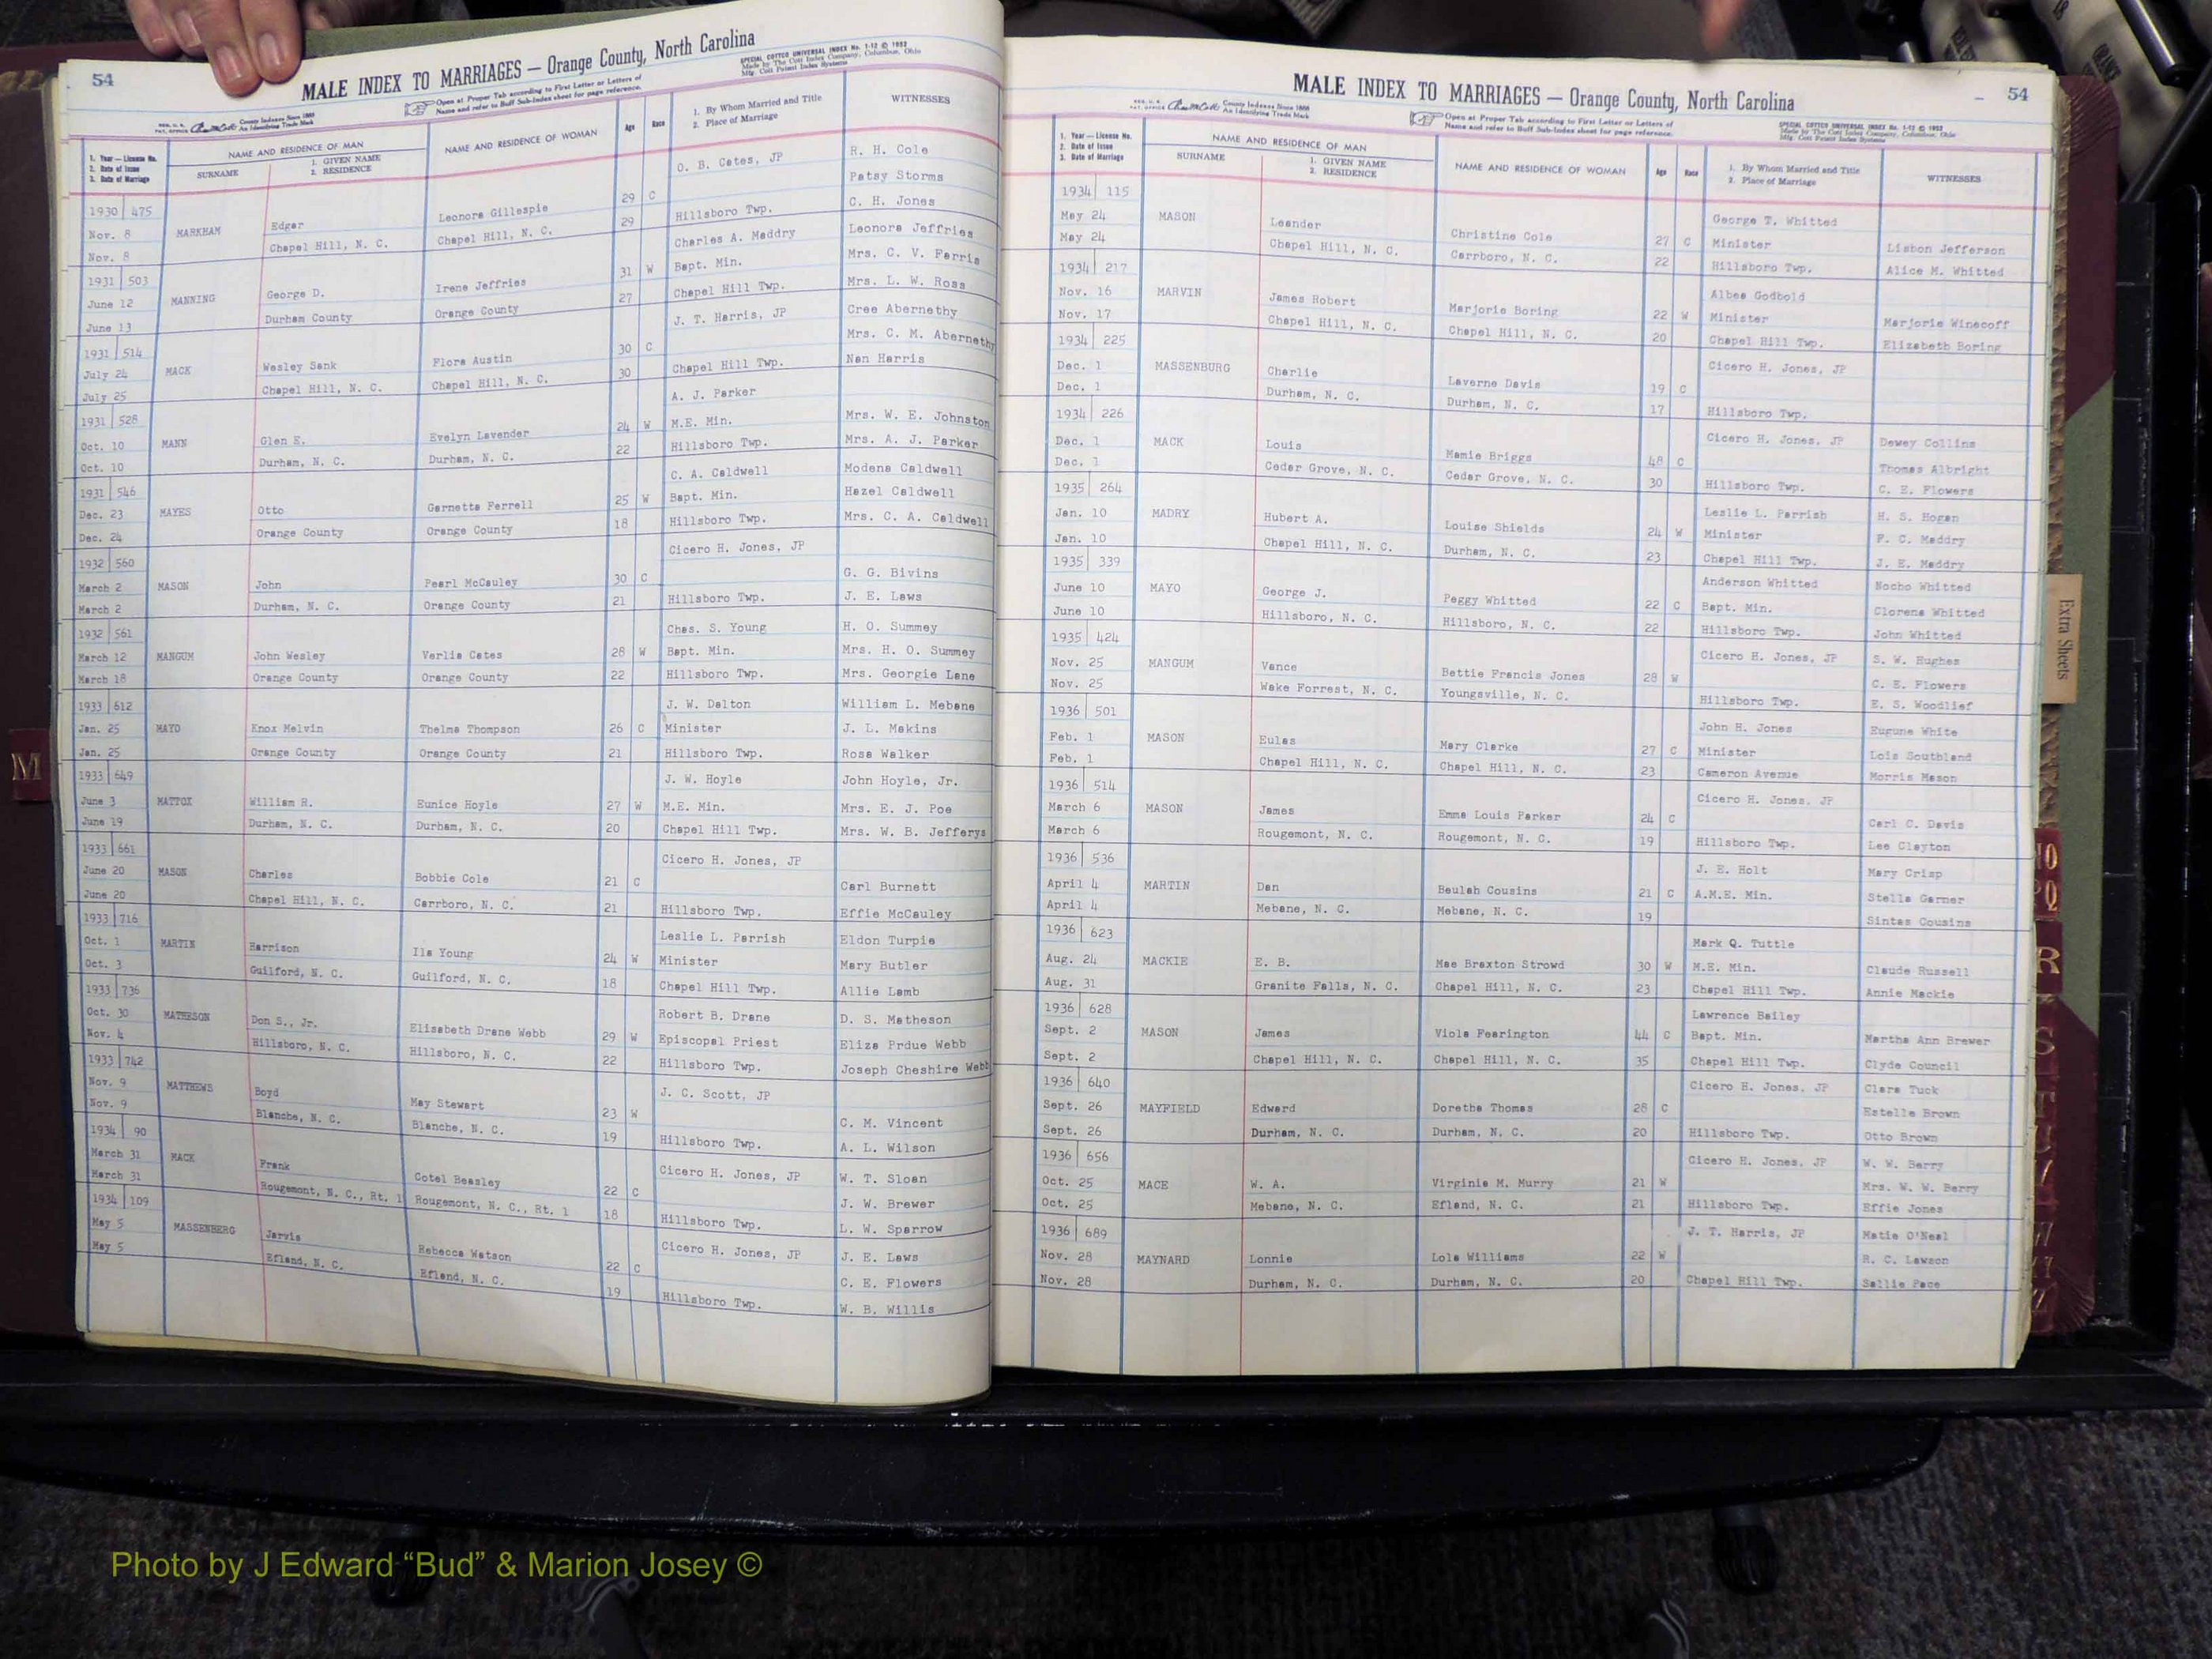 54
MALE INDEX TO MARRIAGES — Orange County, North Carolina
SPECIAL COTTCO UNIVERSAL INDEX No. 1-12 © 1952
Made by The Cott Index Company, Columbus, Ohio
Mfg. Cott Patent Index Systems
Open at Proper Tab according to First Letter or Letters of
Name and refer to Buff Sub-Index sheet for page reference.
County Indexes Since 1888
An Identifying Trade Mark
1. Year — License No.
2. Date of Issue
3. Date of Marriage
NAME AND RESIDENCE OF MAN
SURNAME
1. GIVEN NAME
2. RESIDENCE
NAME AND RESIDENCE OF WOMAN
Age
Race
1. By Whom Married and Title
2. Place of Marriage
WITNESSES
O. B. Cates, JP R. H. Cole
1930 475 Leonora Gillespie 29 C Patsy Storms
Nov. 8 MARKHAM Edgar Chapel Hill, N. C. 29 Hillsboro Twp. C. H. Jones
Nov. 8 Chapel Hill, N. C.
Charles A. Maddry Leonora Jeffries
1931 503 Irene Jeffries 31 W Bapt. Min. Mrs. C. V. Ferris
June 12 MANNING George D. Orange County 27 Chapel Hill Twp. Mrs. L. W. Ross
June 13 Durham County
J. T. Harris, JP Cree Abernethy
1931 514 Flora Austin 30 C Mrs. C. M. Abernethy
July 24 MACK Wesley Sank Chapel Hill, N. C. 30 Chapel Hill Twp. Nan Harris
July 25 Chapel Hill, N. C.
A. J. Parker
1931 528 Evelyn Lavender 24 W M.E. Min. Mrs. W. E. Johnston
Oct. 10 MANN Glen E. Durham, N. C. 22 Hillsboro Twp. Mrs. A. J. Parker
Oct. 10 Durham, N. C.
C. A. Caldwell Modena Caldwell
1931 546 Garnette Ferrell 25 W Bapt. Min. Hazel Caldwell
Dec. 23 MAYES Otto Orange County 18 Hillsboro Twp. Mrs. C. A. Caldwell
Dec. 24 Orange County
1932 560 Cicero H. Jones, JP
March 2 MASON John Pearl McCauley 30 C G. G. Bivins
March 2 Durham, N. C. Orange County 21 Hillsboro Twp. J. E. Laws
1932 561 Chas. S. Young H. O. Summey
March 12 MANGUM John Wesley Verlie Cates 28 W Bapt. Min. Mrs. H. O. Summey
March 18 Orange County Orange County 22 Hillsboro Twp. Mrs. Georgie Lane
1933 612 J. W. Dalton William L. Mebane
Jan. 25 MAYO Knox Melvin Thelma Thompson 26 C Minister J. L. Makins
Jan. 25 Orange County Orange County 21 Hillsboro Twp. Rosa Walker
1933 649 J. W. Hoyle John Hoyle, Jr.
June 3 MATTOX William H. Eunice Hoyle 27 W M.E. Min. Mrs. E. J. Poe
June 19 Durham, N. C. Durham, N. C. 20 Chapel Hill Twp. Mrs. W. B. Jefferys
1933 661 Cicero H. Jones, JP
June 20 MASON Charles Bobbie Cole 21 C Carl Burnett
June 20 Chapel Hill, N. C. Carrboro, N. C. 21 Hillsboro Twp. Effie McCauley
1933 716 Leslie L. Parrish Eldon Turpie
Oct. 1 MARTIN Harrison Ila Young 24 W Minister Mary Butler
Oct. 3 Guilford, N. C. Guilford, N. C. 18 Chapel Hill Twp. Allie Lamb
1933 736 Robert B. Drane D. S. Matheson
Oct. 30 MATHESON Don S., Jr. Elizabeth Drane Webb 29 W Episcopal Priest Eliza Prdue Webb
Nov. 4 Hillsboro, N. C. Hillsboro, N. C. 22 Hillsboro Twp. Joseph Cheshire Webb
1933 742 J. C. Scott, JP
Nov. 9 MATTHEWS Boyd May Stewart 23 W C. M. Vincent
Nov. 9 Blanche, N. C. Blanche, N. C. 19 Hillsboro Twp. A. L. Wilson
1934 90 Cicero H. Jones, JP W. T. Sloan
March 31 MACK Frank Cotel Beasley 22 C J. W. Brewer
March 31 Rougemont, N. C., Rt. 1 Rougemont, N. C., Rt. 1 18 Hillsboro Twp. L. W. Sparrow
1934 109 Cicero H. Jones, JP J. E. Laws
May 5 MASSENBERG Jarvis Rebecca Watson 22 C C. E. Flowers
May 5 Efland, N. C. Efland, N. C. 19 Hillsboro Twp. W. B. Willis
M
MALE INDEX TO MARRIAGES — Orange County, North Carolina
54
County Indexes Since 1888
An Identifying Trade Mark
Open at Proper Tab according to First Letter or Letters of
Name and refer to Buff Sub-Index sheet for page reference.
SPECIAL COTTCO UNIVERSAL INDEX No. 1-12 © 1952
Made by The Cott Index Company, Columbus, Ohio
Mfg. Cott Patent Index Systems
1. Year — License No.
2. Date of Issue
3. Date of Marriage
NAME AND RESIDENCE OF MAN
SURNAME
1. GIVEN NAME
2. RESIDENCE
NAME AND RESIDENCE OF WOMAN
Age
Race
1. By Whom Married and Title
2. Place of Marriage
WITNESSES
1934 115 George T. Whitted
May 24 MASON Leander Christine Cole 27 C Minister Lisbon Jefferson
May 24 Chapel Hill, N. C. Carrboro, N. C. 22 Hillsboro Twp. Alice M. Whitted
1934 217 Albea Godbold
Nov. 16 MARVIN James Robert Marjorie Boring 22 W Minister Marjorie Winecoff
Nov. 17 Chapel Hill, N. C. Chapel Hill, N. C. 20 Chapel Hill Twp. Elizabeth Boring
1934 225 Cicero H. Jones, JP
Dec. 1 MASSENBURG Charlie Laverne Davis 19 C
Dec. 1 Durham, N. C. Durham, N. C. 17 Hillsboro Twp.
1934 226 Cicero H. Jones, JP Dewey Collins
Dec. 1 MACK Louis Mamie Briggs 48 C Thomas Albright
Dec. 1 Cedar Grove, N. C. Cedar Grove, N. C. 30 Hillsboro Twp. C. E. Flowers
1935 264 Leslie L. Parrish H. S. Hogan
Jan. 10 MADRY Hubert A. Louise Shields 24 W Minister F. C. Maddry
Jan. 10 Chapel Hill, N. C. Durham, N. C. 23 Chapel Hill Twp. J. E. Maddry
1935 339 Anderson Whitted Nocho Whitted
June 10 MAYO George J. Peggy Whitted 22 C Bapt. Min. Clorena Whitted
June 10 Hillsboro, N. C. Hillsboro, N. C. 22 Hillsboro Twp. John Whitted
1935 424 Cicero H. Jones, JP S. W. Hughes
Nov. 25 MANGUM Vance Bettie Francis Jones 28 W C. E. Flowers
Nov. 25 Wake Forrest, N. C. Youngsville, N. C. Hillsboro Twp. E. S. Woodlief
1936 501 John H. Jones Eugune White
Feb. 1 MASON Eulas Mary Clarke 27 C Minister Lois Southland
Feb. 1 Chapel Hill, N. C. Chapel Hill, N. C. 23 Cameron Avenue Morris Mason
1936 514 Cicero H. Jones, JP
March 6 MASON James Emma Louis Parker 24 C Carl C. Davis
March 6 Rougemont, N. C. Rougemont, N. C. 19 Hillsboro Twp. Lee Clayton
1936 536 J. E. Holt Mary Crisp
April 4 MARTIN Dan Beulah Cousins 21 C A.M.E. Min. Stella Garner
April 4 Mebane, N. C. Mebane, N. C. 19 Sintas Cousins
1936 623 Mark Q. Tuttle
Aug. 24 MACKIE E. B. Mae Braxton Strowd 30 W M.E. Min. Claude Russell
Aug. 31 Granite Falls, N. C. Chapel Hill, N. C. 23 Chapel Hill Twp. Annie Mackie
1936 628 Lawrence Bailey
Sept. 2 MASON James Viola Fearington 44 C Bapt. Min. Martha Ann Brewer
Sept. 2 Chapel Hill, N. C. Chapel Hill, N. C. 35 Chapel Hill Twp. Clyde Council
1936 640 Cicero H. Jones, JP Clara Tuck
Sept. 26 MAYFIELD Edward Doretha Thomas 28 C Estelle Brown
Sept. 26 Durham, N. C. Durham, N. C. 20 Hillsboro Twp. Otto Brown
1936 656 Cicero H. Jones, JP W. W. Berry
Oct. 25 MACE W. A. Virginia M. Murry 21 W Mrs. W. W. Berry
Oct. 25 Mebane, N. C. Efland, N. C. 21 Hillsboro Twp. Effie Jones
1936 689 J. T. Harris, JP Matie O'Neal
Nov. 28 MAYNARD Lonnie Lola Williams 22 W R. C. Lawson
Nov. 28 Durham, N. C. Durham, N. C. 20 Chapel Hill Twp. Sallie Pace
Extra Sheets
R
S
Photo by J Edward “Bud” & Marion Josey ©